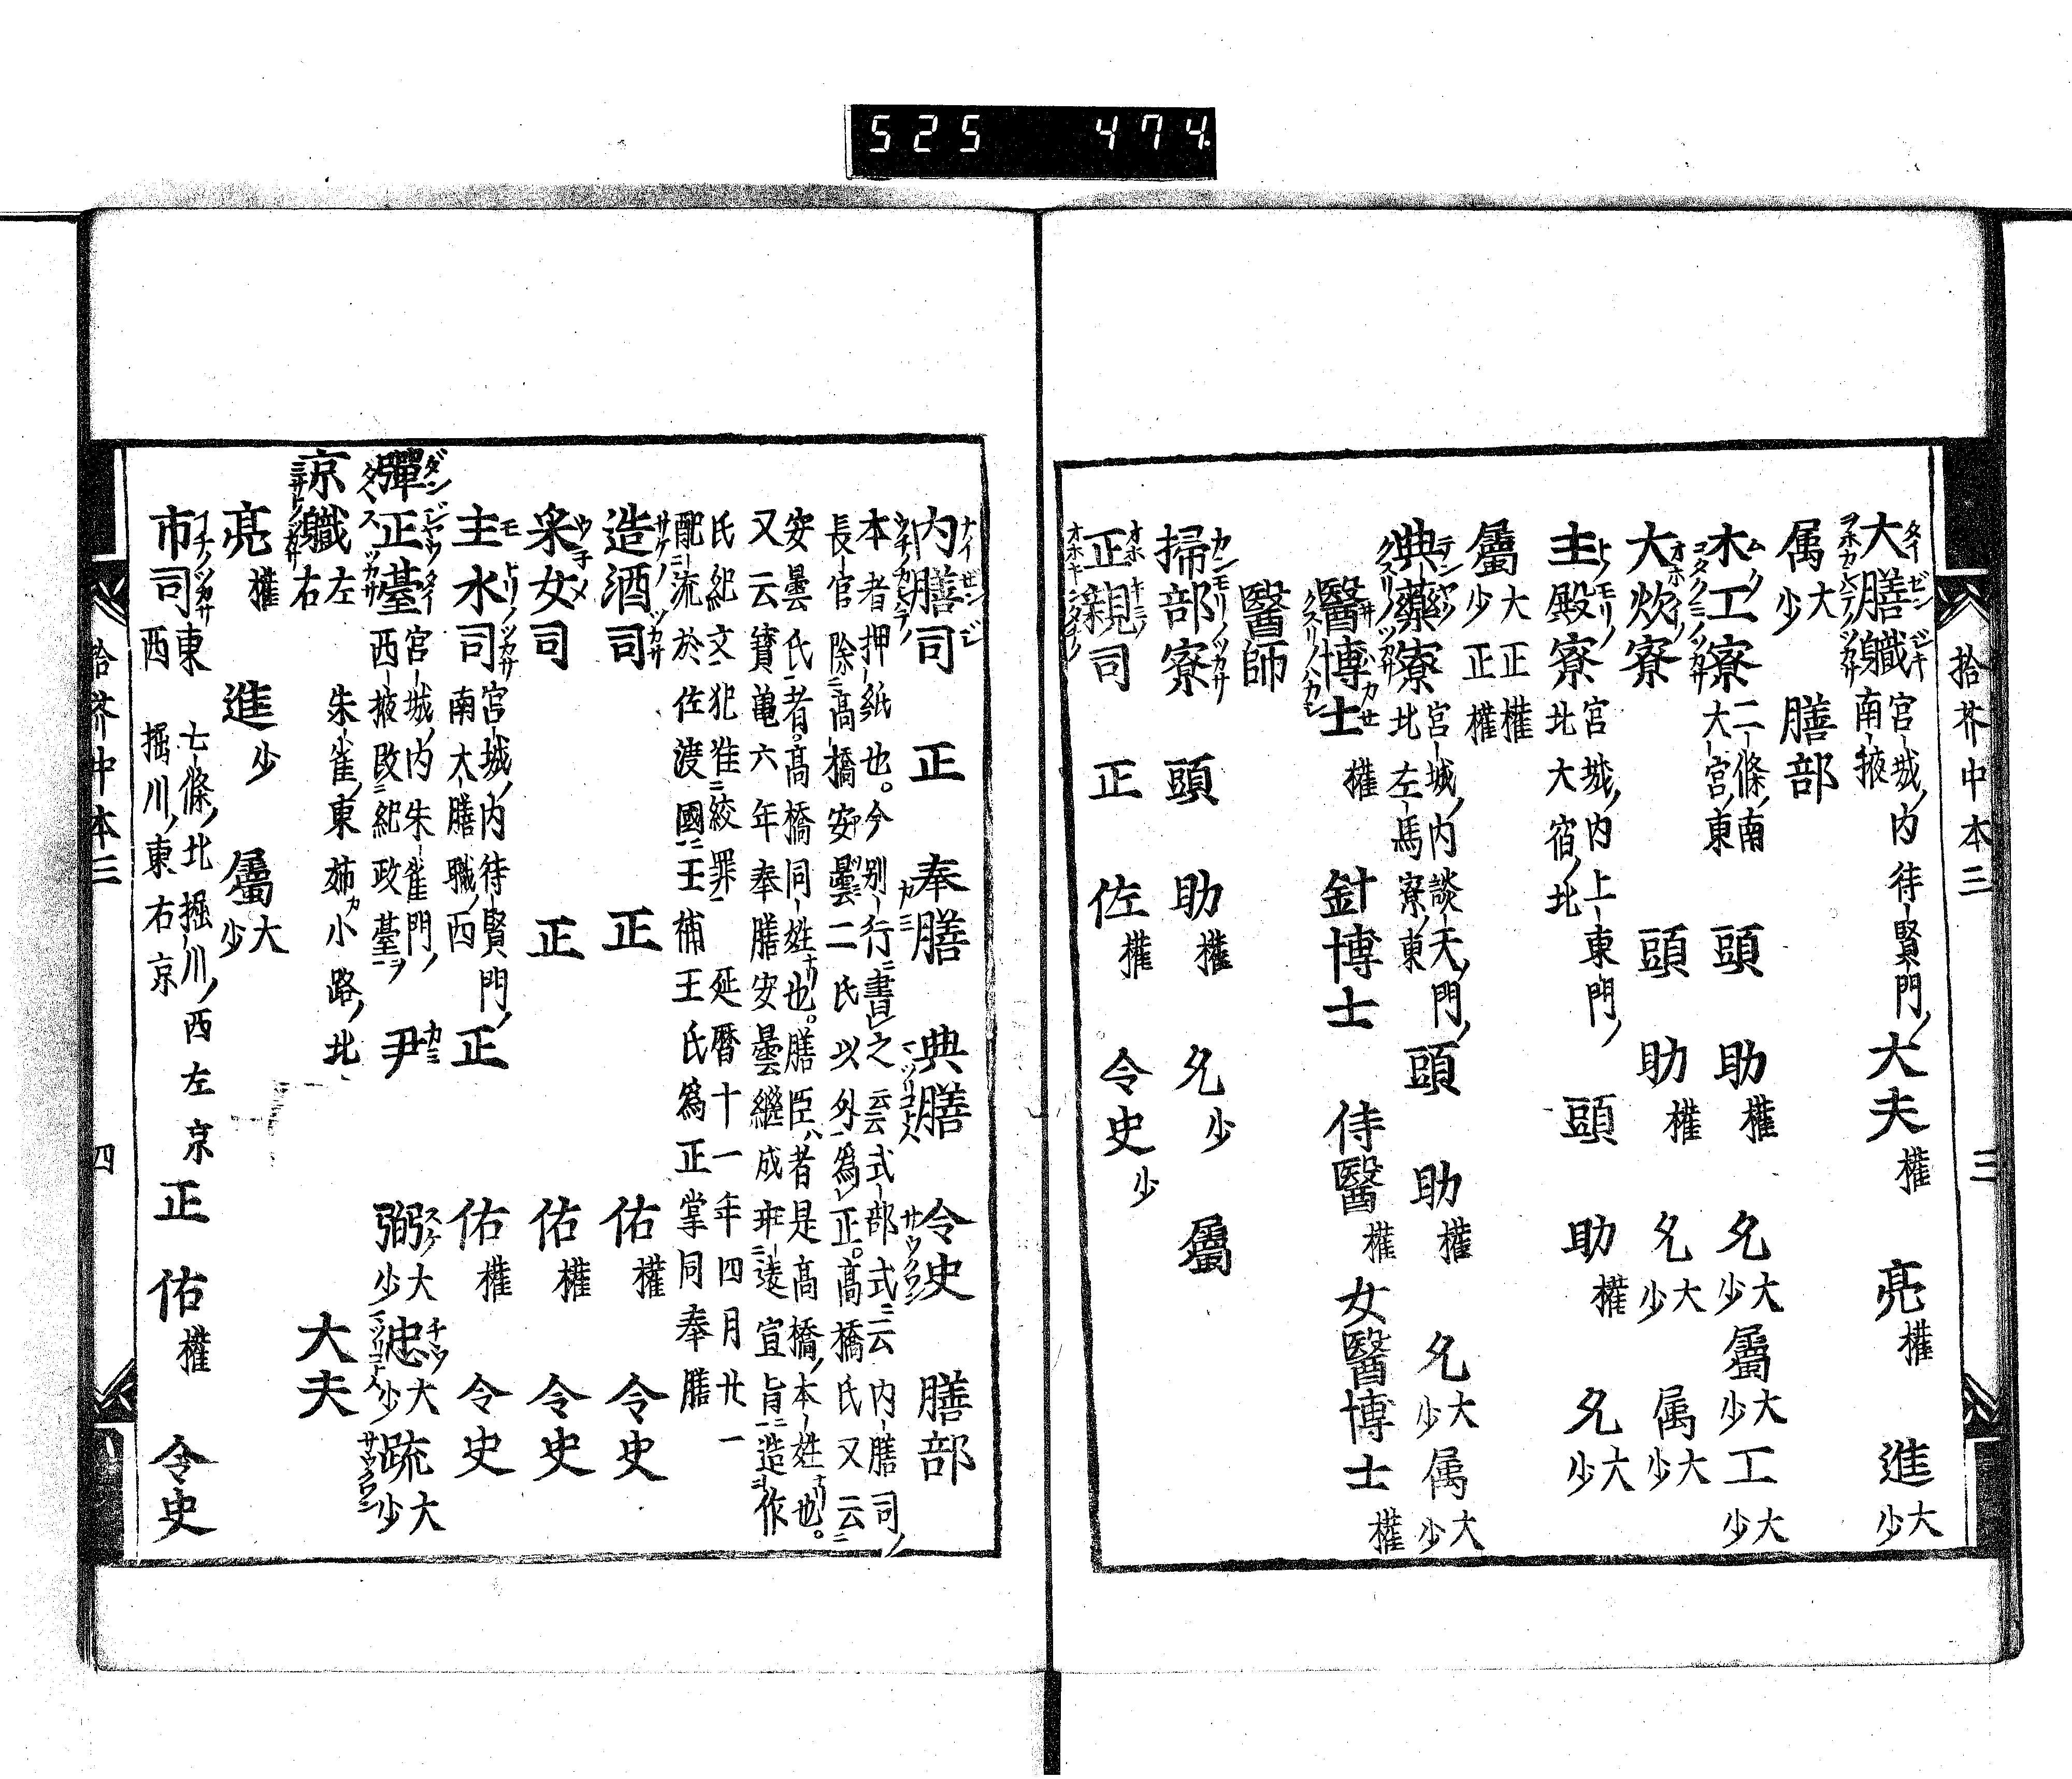 525 474
拾芥中本三 三
大膳職 宮城内 待賢門 南掖 大夫 權 亮 權 進 大少
属 大少 膳部
木工寮 二條南 大宮東 頭 助 權 允 大少 屬 大少 工 大少
大炊寮 頭 助 權 允 大少 属 大少
主殿寮 宮城内 上東門 北大宿北 頭 助 權 允 大少
屬 大少 正正 權權
典藥寮 宮城内 談天門 北左馬寮東 頭 助 權 允 大少 属 大少
醫博士 權 針博士 侍醫 權 女醫博士 權
醫師
掃部寮 頭 助 權 允 少 屬
正親司 正 佐 權 令史 少
内膳司 正 奉膳 典膳 令史 膳部
本者押紙也。今别行書之云云 式部式云 内膳司
長官除高橋安曇二氏以外爲正。高橋氏又云
安曇氏者。高橋同姓也。膳臣者是高橋本姓也。
又云寶亀六年奉膳安曇繼成班違宣旨造作
氏紀文犯准絞罪 延暦十一年四月廿一
配流於佐渡國王補王氏爲正掌同奉膳
造酒司 正 佑 權 令史
采女司 正 佑 權 令史
主水司 宮城内 待賢門 南大膳職西 正 佑 權 令史
彈正臺 宮城内朱雀門 西掖改紀政臺 尹 弼 大少 忠 大少 疏 大少
京職 左右 朱雀東姊小路北 大夫
亮 權 進 少 屬 大少
市司 東西 七條北 堀川西左京 堀川東右京 正 佑 權 令史
拾芥中本三 四